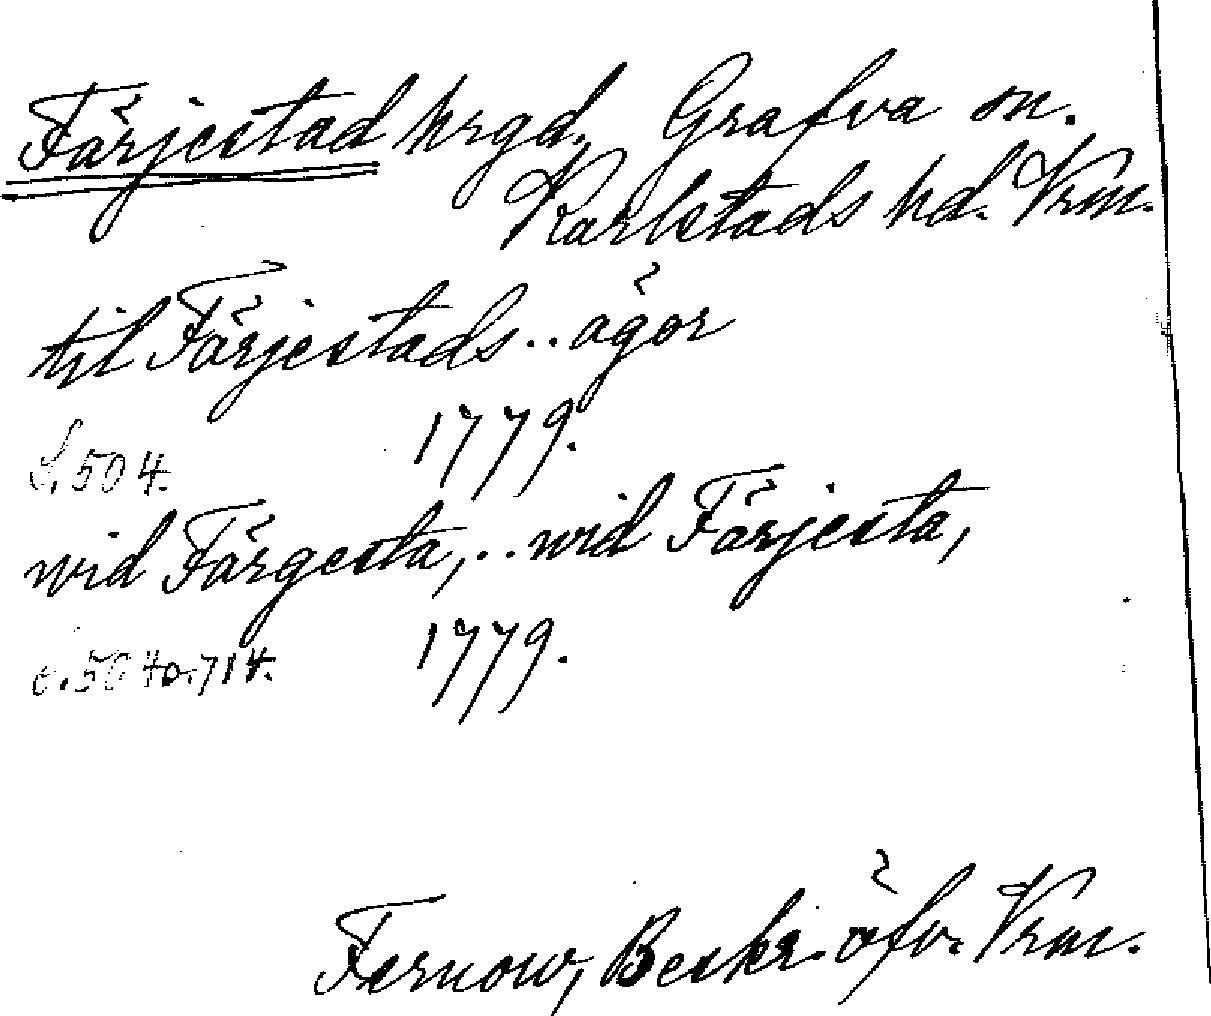 Färjestad hrgd. Grafva sn.
Karlstads hd. Vrm.
til Färjestads .. ägor
s. 504. 1779.
wid Färgesta, .. wid Färjesta,
s. 504 o. 714. 1779.
Fernow, Beskr. öfv. Vrm.